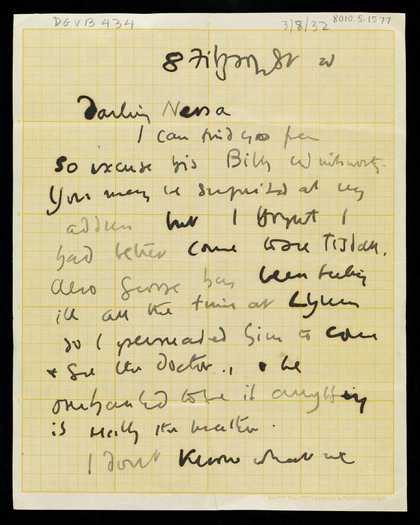 DGVB 434
3/8/32
8010.5.1577
8 Fitzroy St W
Darling Nessa
I can find no pen
so excuse
You may be surprised at my
address but I thought I
had better come to see
Also George has been feeling
ill all the time at
so I persuaded him to come
& see the doctor, & he
if anything
is really the matter.
I dont know what we